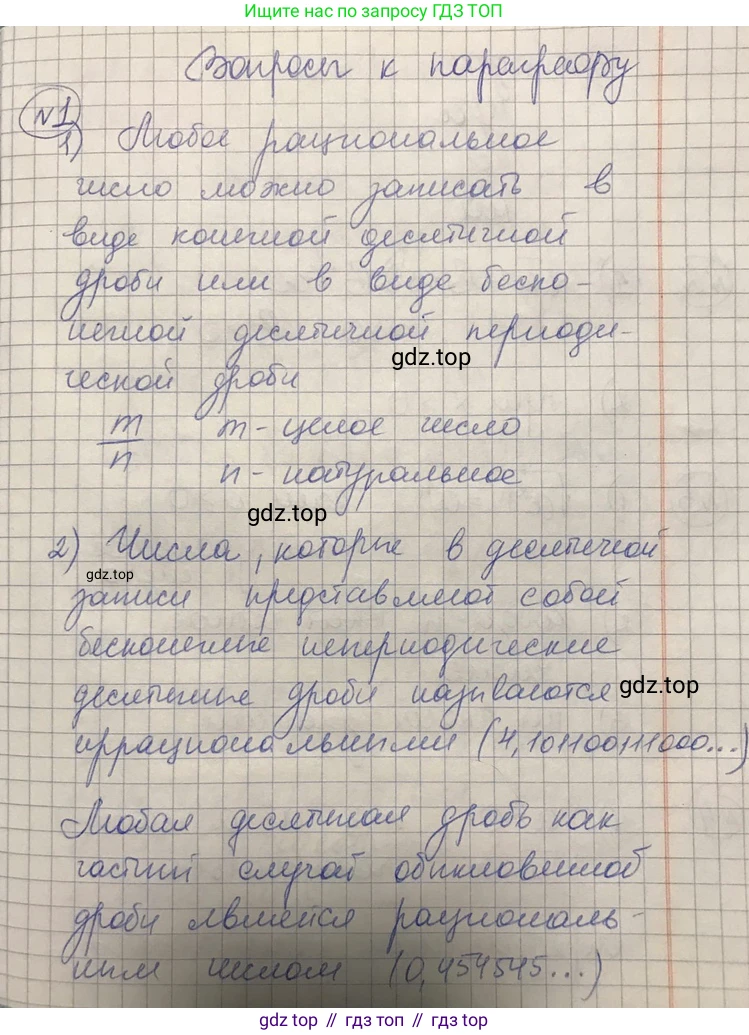 Ищите нас по запросу ГДЗ ТОП
Вопросы к параграфу
№1
1) Любое рациональное
число можно записать в
виде конечной десятичной
дроби или в виде беско-
нечной десятичной периоди-
gdz.top
ческой дроби
m/n m - целое число
n - натуральное
gdz.top
2) Числа, которые в десятичной
gdz.top
записи представляют собой
бесконечные непериодические
десятичные дроби называются
gdz.top
иррациональными (4,101100111000...)
Любая десятичная дробь как
частный случай обыкновенной
дроби является рациональ-
ным числом (0,454545...)
gdz.top // gdz.top // gdz.top